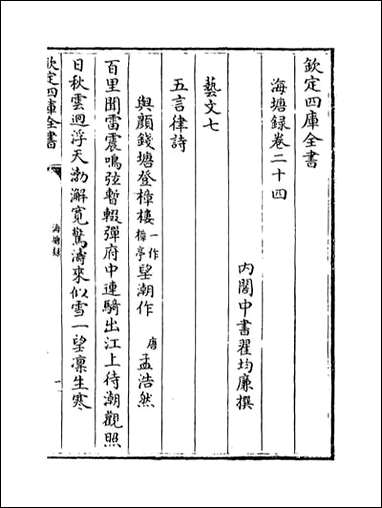 欽定四庫全書
海塘錄卷二十四
內閣中書翟均廉撰
藝文七
五言律詩
與顔錢塘登樟樓一作樟亭望潮作 唐 孟浩然
百里聞雷震鳴弦暫輟彈府中連騎出江上待潮觀照
日秋雲迥浮天渤澥寛驚濤來似雪一望凜生寒
欽定四庫全書
海塘錄
一